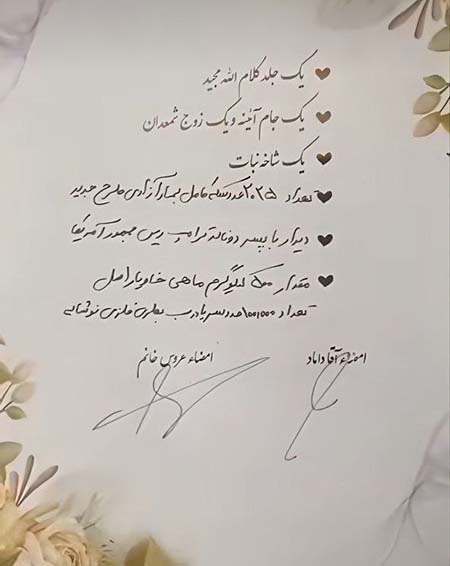 یک جلد کلام الله مجید
یک جام آئینه و یک زوج شمعدان
یک شاخه نبات
تعداد ۲۰۲۵ عدد سکه کامل بهار آزادی طرح جدید
دیدار با پسر دونالد ترامپ رییس جمهور آمریکا
مقدار ۵۰۰ کیلوگرم ماهی خاویار اصل
تعداد ۱۰۰۱۰۰۰ عدد سر با درب بطری فلزی نوشابه
امضاء آقا داماد
امضاء عروس خانم